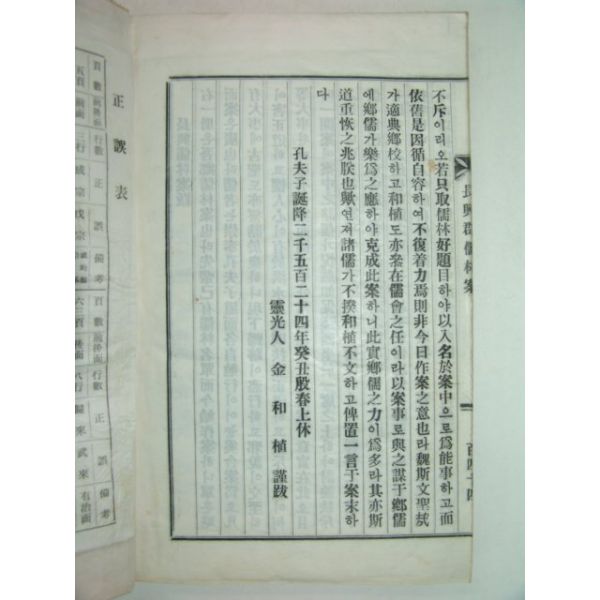 長興郡儒林案 百四十四
不斥이리오若只取儒林好題目하야以入名於案中으로爲能事하고面
依舊是因循自容하여不復着力焉則非今日作案之意也라魏斯文聖
가適典鄕校하고和植도亦叅在儒會之任이라以案事로與之謀于鄕儒
에鄕儒가樂爲之應하야克成此案하니此實鄕儒之力이爲多라其亦斯
道重恢之兆朕也歟연져諸儒가不揆和植不文하고俾置一言于案末하
다
孔夫子誕降二千五百二十四年癸丑殷春上休
靈光人 金和植 謹跋
正誤表
頁數 前後面 行數 正 誤 備考 頁數 前後面 行數 正 誤 備考